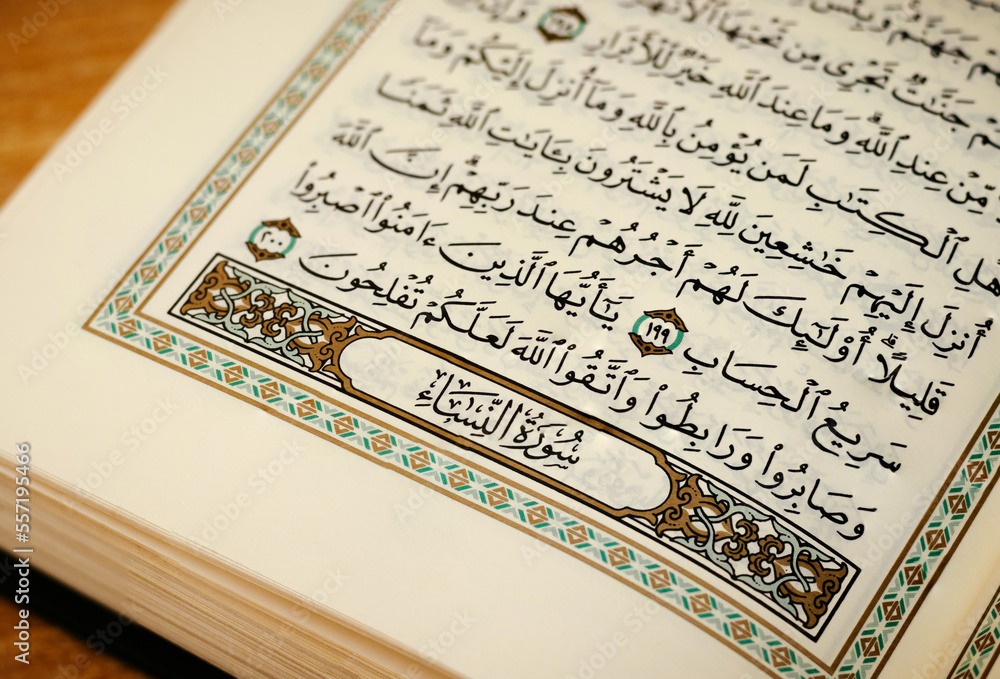 جَهَنَّمُ وَبِئْسَ
جَنَّٰتٌ تَجْرِى مِن تَحْتِهَا ٱلْأَنْهَٰرُ
مِّنْ عِندِ ٱللَّهِ ۗ وَمَا عِندَ ٱللَّهِ خَيْرٌ لِّلْأَبْرَارِ ١٩٨ وَإِنَّ
ٱلْكِتَٰبِ لَمَن يُؤْمِنُ بِٱللَّهِ وَمَآ أُنزِلَ إِلَيْكُمْ وَمَآ
أُنزِلَ إِلَيْهِمْ خَٰشِعِينَ لِلَّهِ لَا يَشْتَرُونَ بِـَٔايَٰتِ ٱللَّهِ ثَمَنًا
قَلِيلًا ۗ أُو۟لَٰٓئِكَ لَهُمْ أَجْرُهُمْ عِندَ رَبِّهِمْ ۗ إِنَّ ٱللَّهَ
سَرِيعُ ٱلْحِسَابِ ١٩٩ يَٰٓأَيُّهَا ٱلَّذِينَ ءَامَنُوا۟ ٱصْبِرُوا۟
وَصَابِرُوا۟ وَرَابِطُوا۟ وَٱتَّقُوا۟ ٱللَّهَ لَعَلَّكُمْ تُفْلِحُونَ ٢٠٠
سُورَةُ النِّسَاءِ
Adobe Stock | #557195466